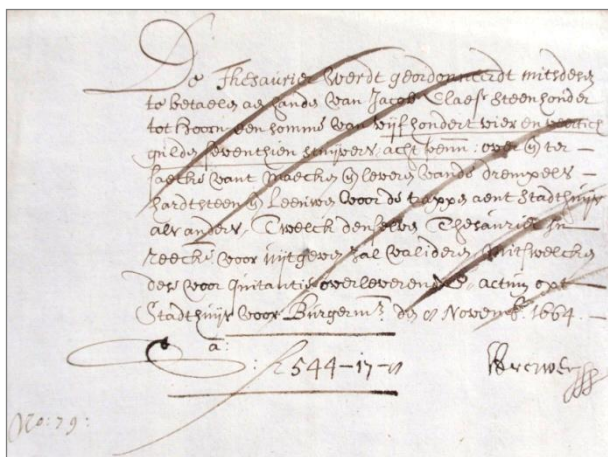 De Thesaurier werdt geordonneerdt mits desen
te betaelen aen handen van Jacob Claess steenhouder
tot Hoorn een somme van vijfhondert vier en veertich
gulden seventhien stuijvers acht penn: over en ter
saecke vant maecken en leveren vande drempels
hardtsteen en Leeuwen voor de trappen aent Stadthuijs
als anders, Twelck denselven Thesaurier in
Reeck: voor uijtgeven sal valideren, Mits welcken
desen voor quitantie overleverende, actum opt
Stadthuijs voor Burgerm:rs den 8 Novemb. 1664.
a:
: f 544-17-8
No: 79: